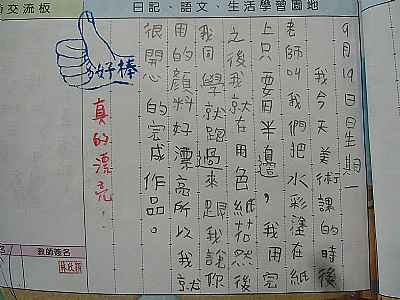 日記、語文、生活學習園地
交流板
9月19日星期一
我今天美術課的時後
老師叫我們把水彩塗在紙
上只要用半邊，我用完
之後我就在用色紙然後
我同學就跑過來跟我說你
用的顏料好漂亮所以我就
很開心的完成作品。
你好棒
真的漂亮！
教師簽名